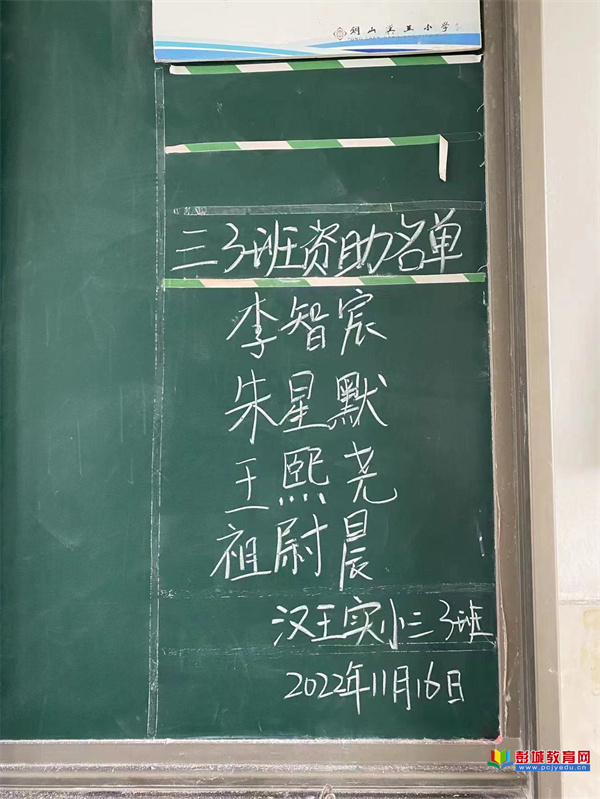 三3班资助名单
李智宸
朱星默
王熙尧
祖尉晨
汉王实小三3班
2022年11月16日
彭城教育网
www.pcjyedu.cn